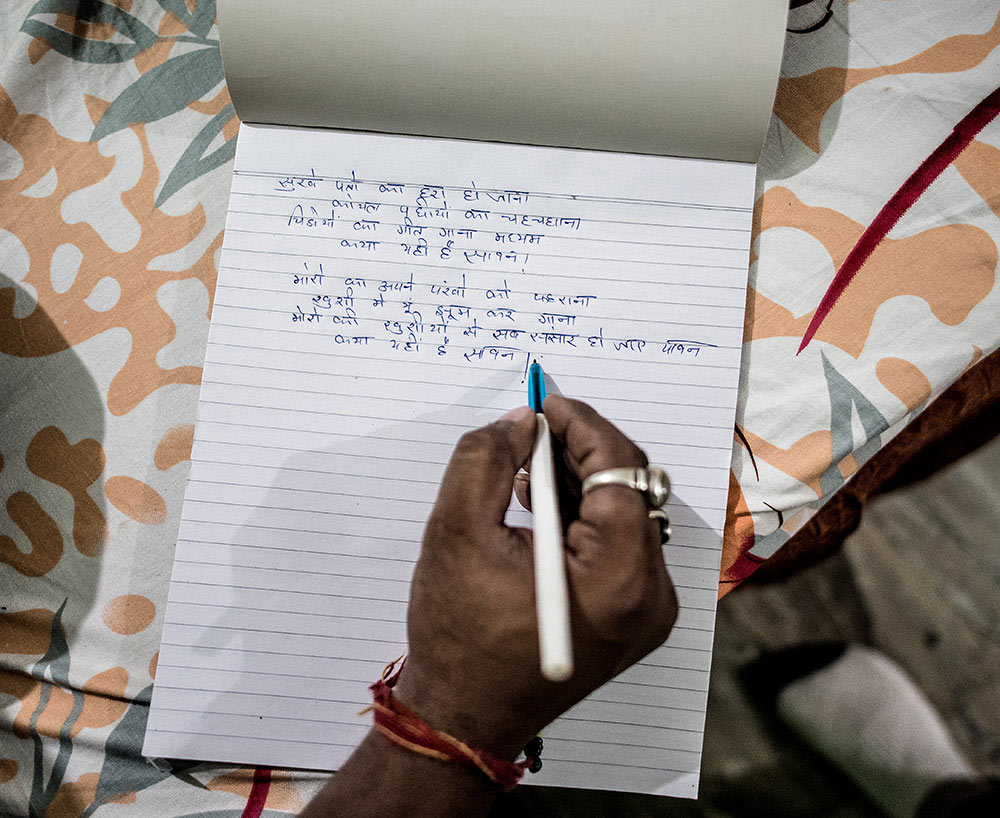 सुखे पत्तो का हरा हो जाना
कोयल पंछीयों का चहचहाना
चिडीयों का गीत गाना मध्यम
क्या यही है सावन!
मोरो का अपने पंखो को फहराना
खुशी में यूं झूम कर गाना
मोरो की खुशीयों से सब संसार हो जाए पावन
क्या यहीं है सावन!